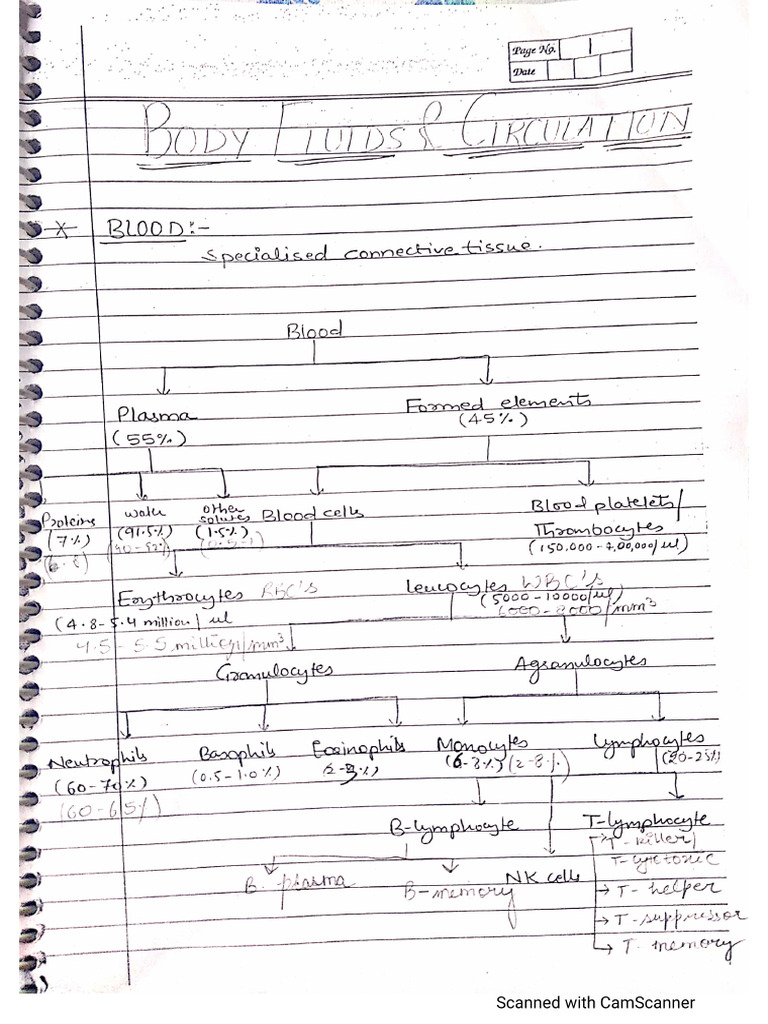 Page No.
Date
BODY FLUIDS & CIRCULATION
BLOOD:-
Specialised connective tissue.
Blood
Plasma
(55%)
Formed elements
(45%)
Proteins
(7%)
Water
(91.5%)
(90-92%)
other
solutes
(1.5%)
Blood cells
Blood platelets/
Thrombocytes
(150,000-4,00,000/ul)
Erythrocytes RBC's
(4.8-5.4 million/ul
4.5-5.5 million/mm³
Leucocytes WBC's
(5000-10000/ul)
6000-8000/mm³
Granulocytes
Agranulocytes
Neutrophils
(60-70%)
(60-65%)
Basophils
(0.5-1.0%)
Eosinophils
Monocytes
(6-8%)
Lymphocytes
(20-25%)
B-lymphocyte
T-lymphocyte
B. plasma
B-memory
NK cells
T-killer/
T-cytotoxic
T-helper
T-suppressor
T. memory
Scanned with CamScanner